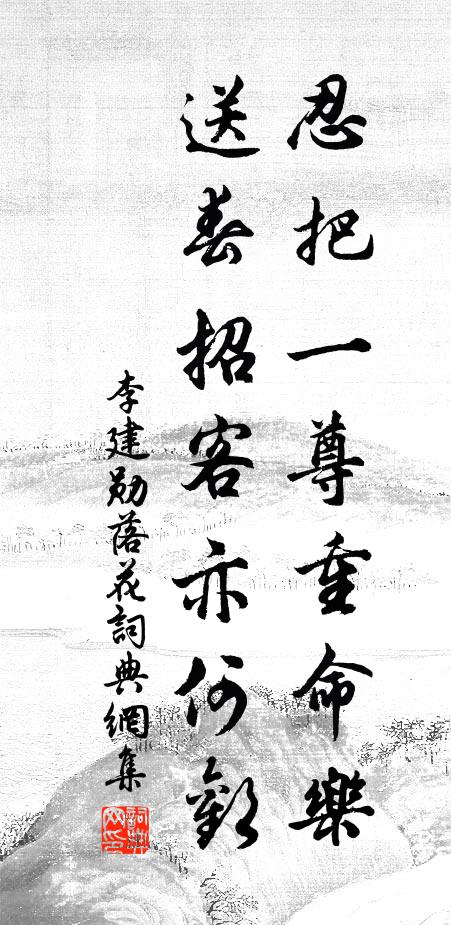 忍把一尊重命樂
送春招客亦何歡
李建勛落花詞典網集